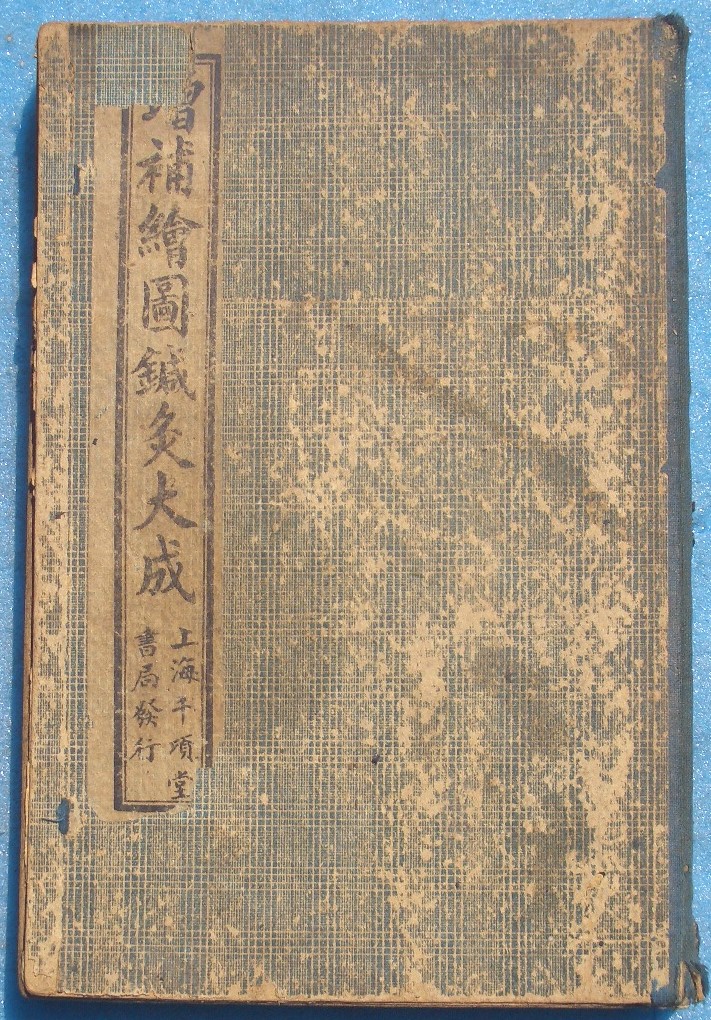 增補繪圖鍼灸大成
上海千頃堂
書局發行